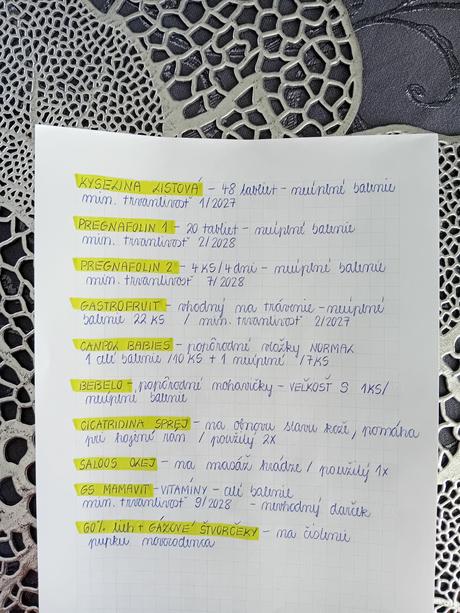 KYSELINA LISTOVÁ – 48 tabliet – neúplné balenie
min. trvanlivosť 1/2027
PREGNAFOLIN 1 – 20 tabliet – neúplné balenie
min. trvanlivosť 2/2028
PREGNAFOLIN 2 – 4 KS/4 dni – neúplné balenie
min. trvanlivosť 7/2028
GASTROFRUIT – vhodný na trávenie – neúplné
balenie 22 KS / min. trvanlivosť 2/2027
CANPOL BABIES – popôrodné vložky NORMAL
1 celé balenie /10 KS + 1 neúplné /7KS
BEBELO – popôrodné nohavičky – VEĽKOSŤ S 1KS/
neúplné balenie
CICATRIDINA SPREJ – na obnovu stavu kože, pomáha
pri hojení rán / použitý 2X
SALOOS OLEJ – na masáž hrádze / použitý 1x
GS MAMAVIT – VITAMÍNY – celé balenie
min. trvanlivosť 9/2028 – nevhodný darček
60% lieh + GÁZOVÉ ŠTVORČEKY – na čistenie
pupku novorodenca